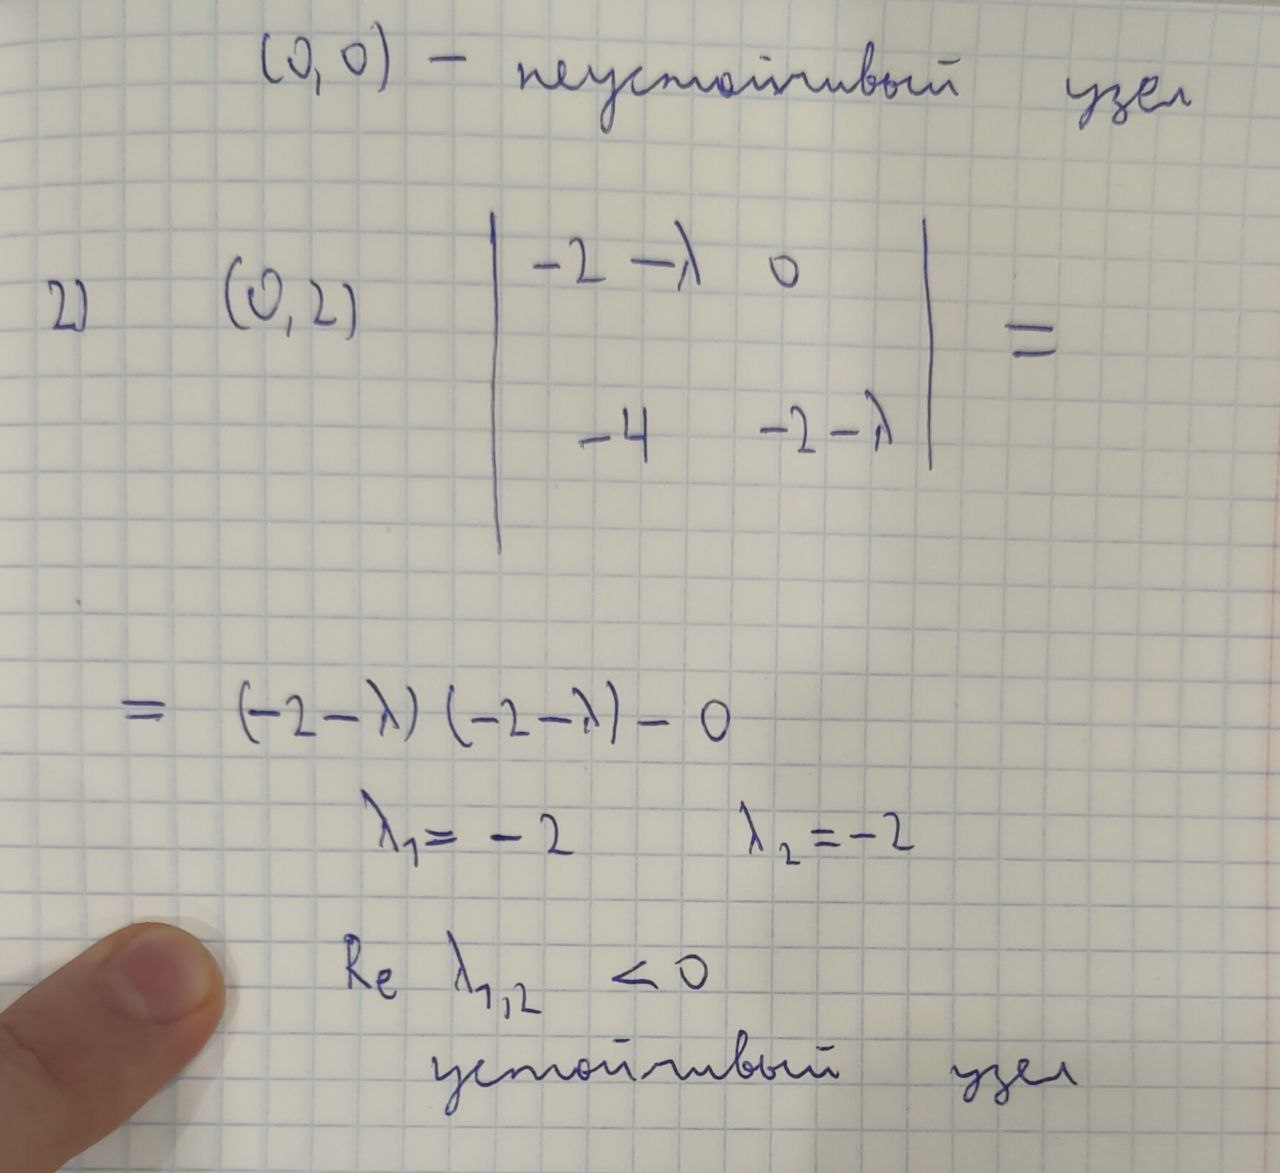 (0,0) – неустойчивый узел
2) (0,2) | -2 -λ 0 | =
-4 -2-λ
= (-2-λ) (-2-λ) - 0
λ₁ = -2 λ₂ = -2
Re λ₁,₂ < 0
устойчивый узел